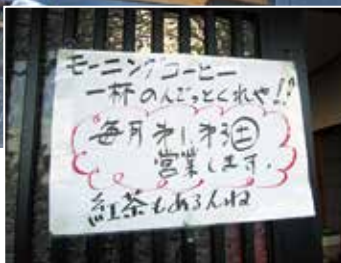 モーニングコーヒー
一杯のんごっとくれや!!
毎月第1、第3土
営業します。
紅茶もあるんね